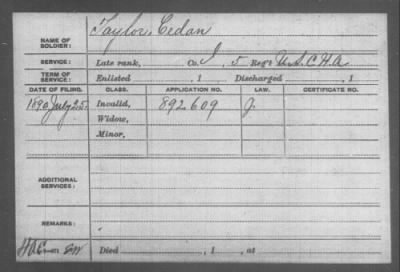 NAME OF SOLDIER: Taylor, Cedan
SERVICE: Late rank, Co. I, 5 Reg't U.S.C.H.A.
TERM OF SERVICE: Enlisted , 1 Discharged , 1
DATE OF FILING. CLASS. APPLICATION NO. LAW. CERTIFICATE NO.
1890 July 25 Invalid, 892609 J.
Widow,
Minor,
ADDITIONAL SERVICES:
REMARKS:
Died , 1 , at